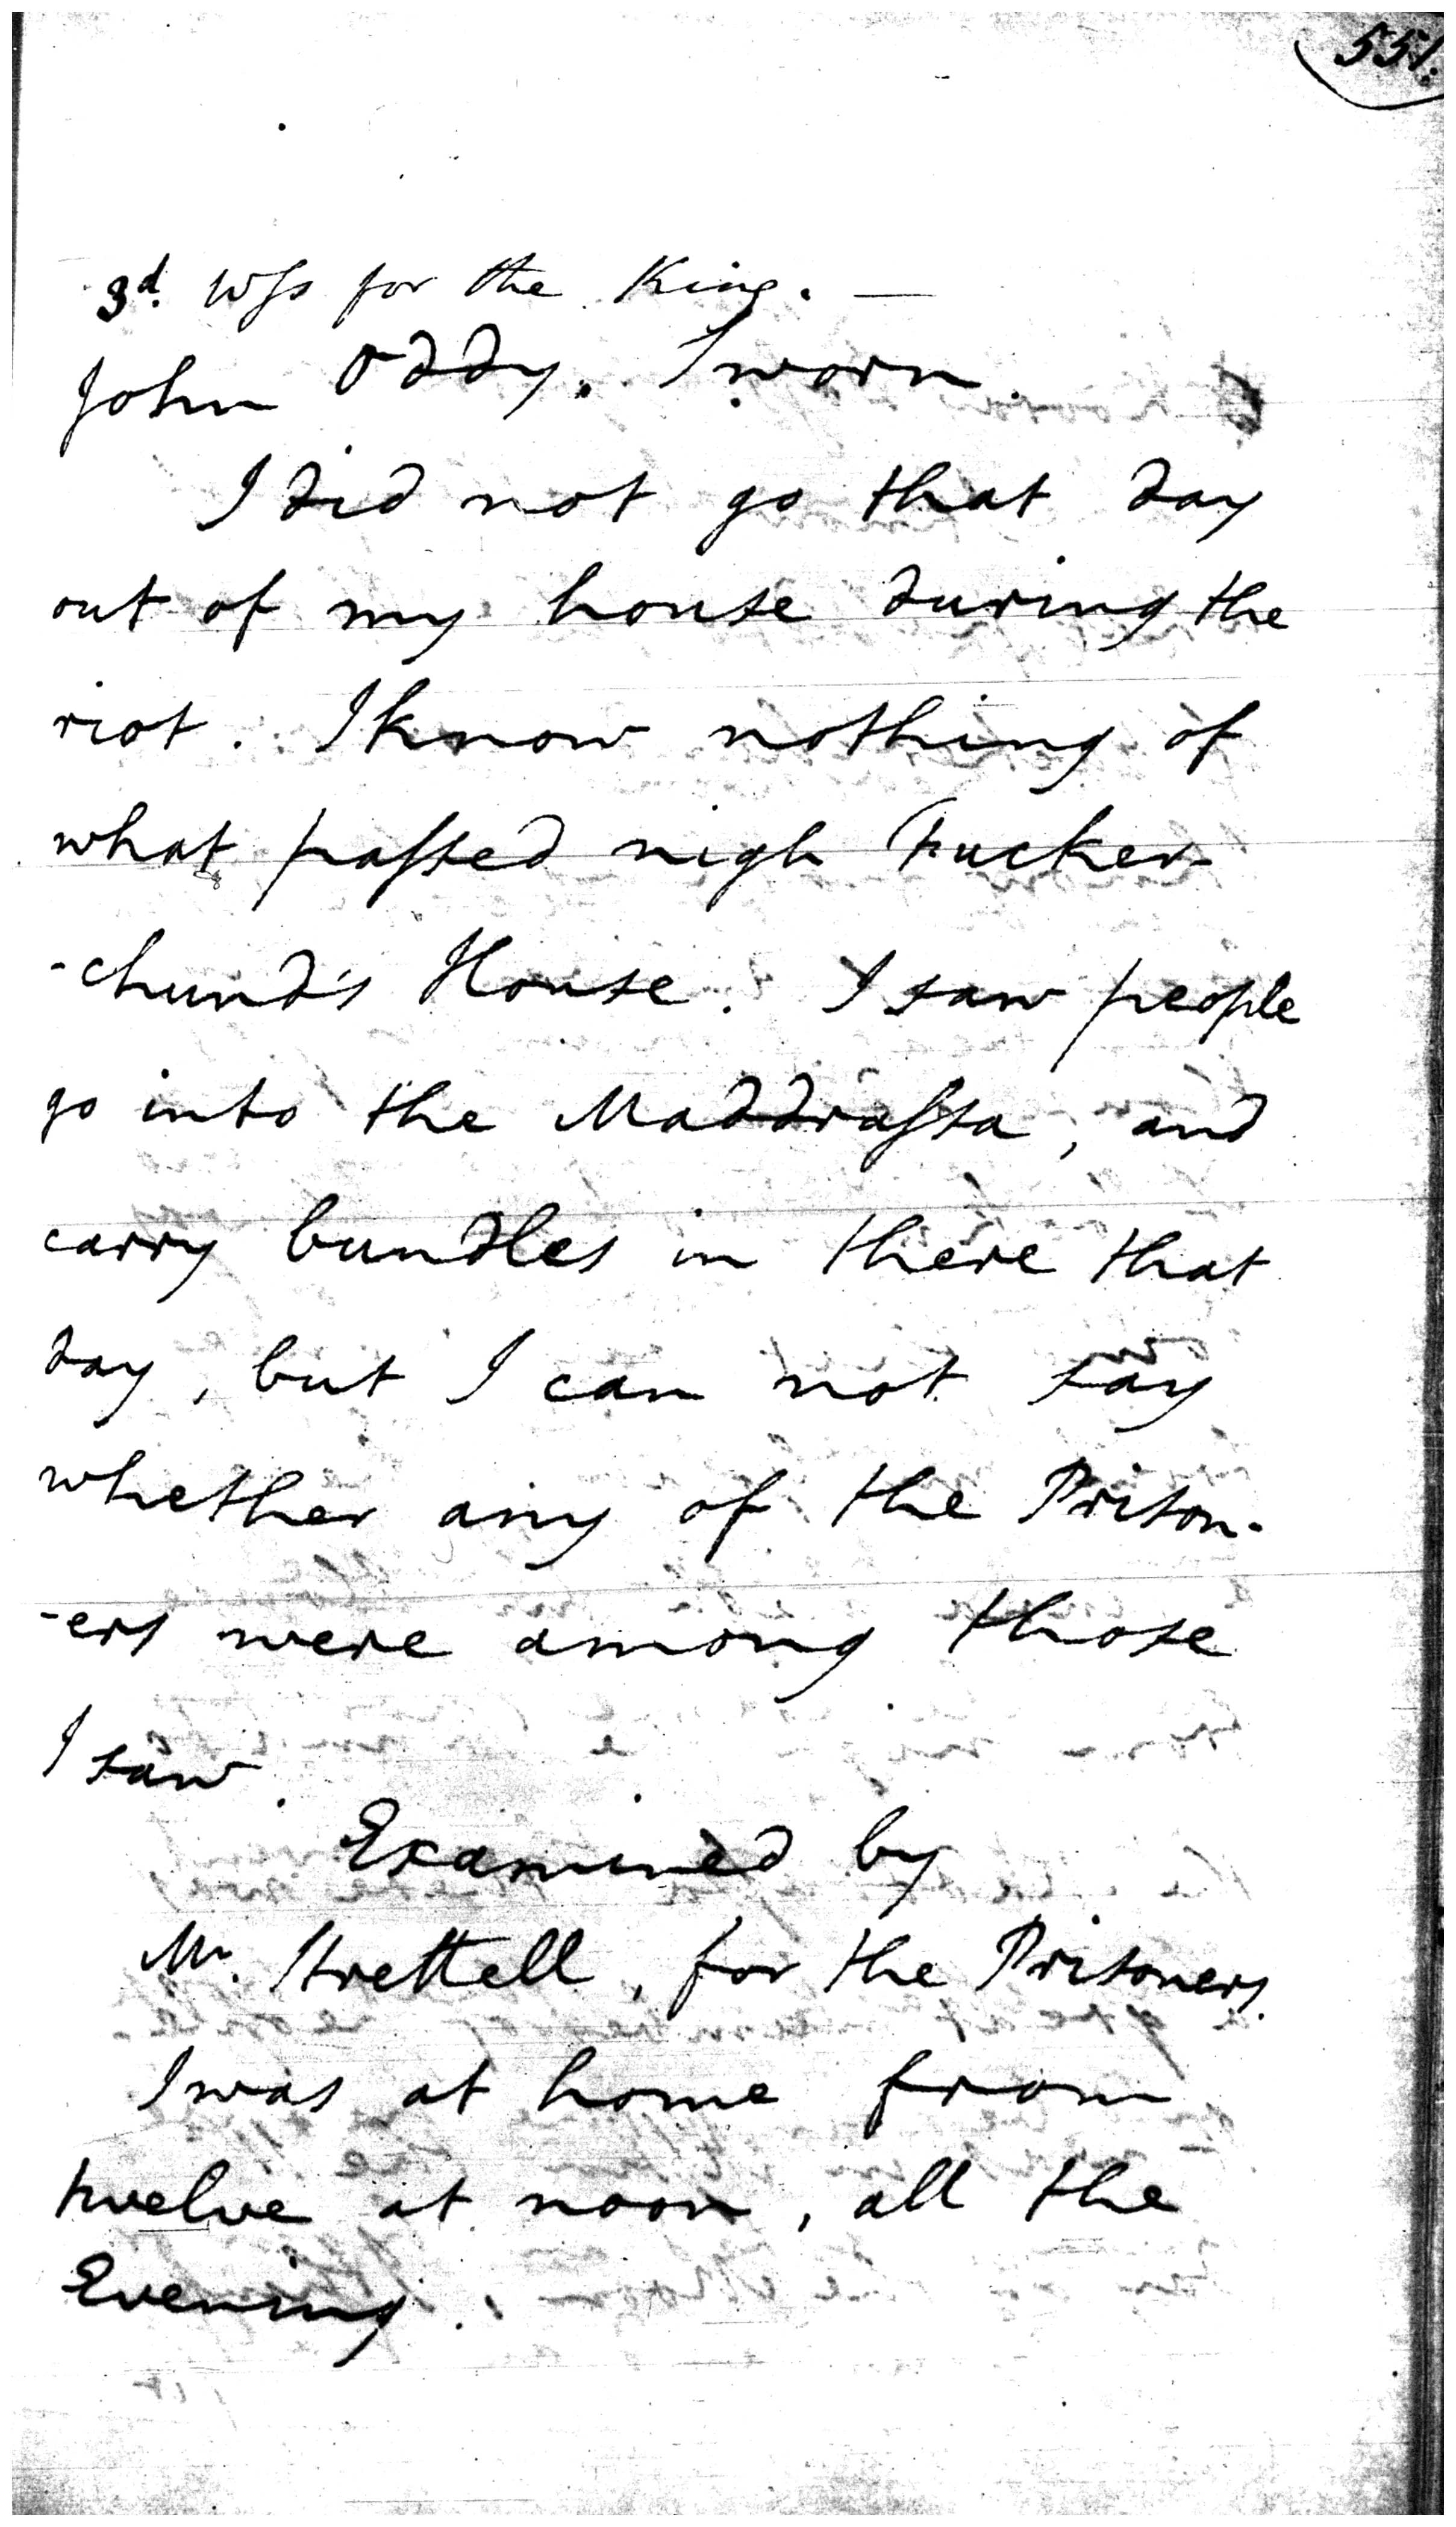 551.
3d. Wſs for the King. —
John Oddy. Sworn.
I did not go that day
out of my house during the
riot. I know nothing of
what paſsed nigh Fucker-
-chund's House. I saw people
go into the Maddraſsa, and
carry bundles in there that
day, but I can not say
whether any of the Prison-
-ers were among those
I saw.
Examined by
Mr. Strettell, for the Prisoners.
I was at home from
twelve at noon, all the
Evening.